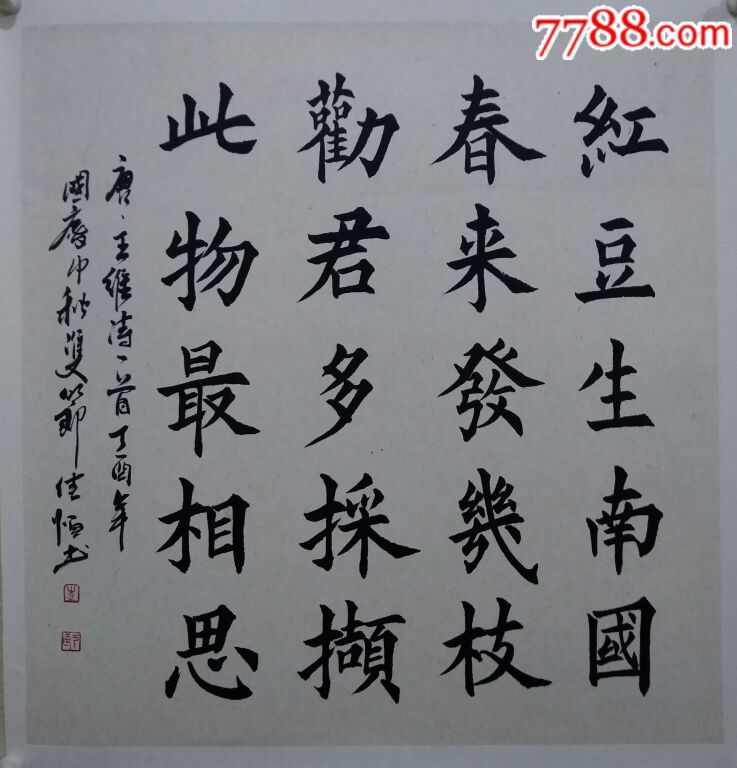 7788.com
紅豆生南國
春来發幾枝
勸君多採擷
此物最相思
唐、王維诗一首丁酉年
國慶中秋雙節佳恒书